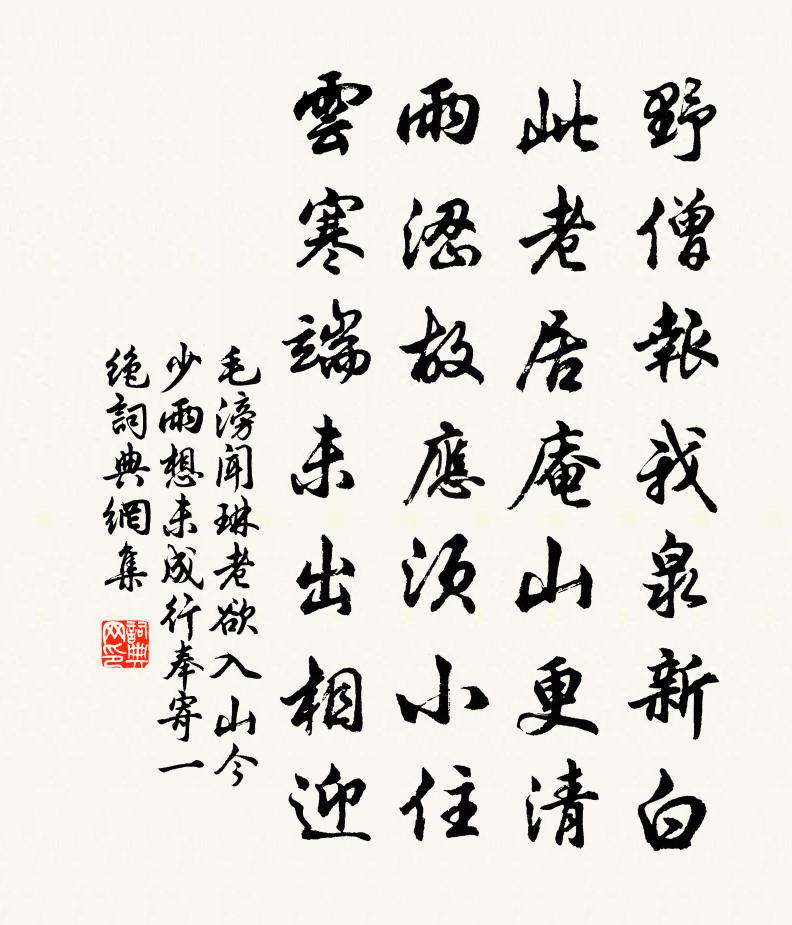 野僧報我泉新白
此老居庵山更清
雨濕故應須小住
雲寒端未出相迎
毛滂聞琳老欲入山今
少雨想未成行奉寄一
絶詞典網集
詞典网印